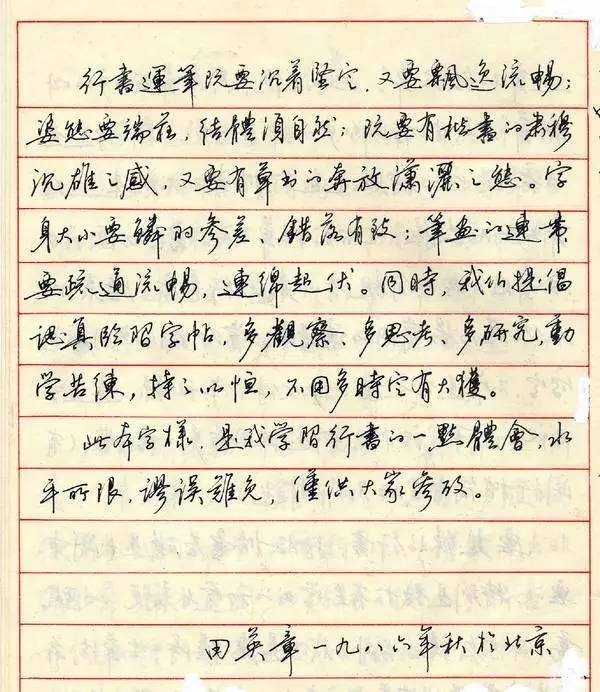 行書運筆既要沉着堅定，又要飄逸流暢；
姿態要端莊，結體須自然；既要有楷書的肅穆
沉雄之感，又要有草书的奔放瀟灑之態。字
身大小要鱗羽參差、錯落有致；筆画的連带
要疏通流暢，連綿起伏。同時，我们提倡
認真臨習字帖，多觀察、多思考、多研究，勤
学苦練，持之以恒，不用多時定有大獲。
此本字樣，是我学習行書的一點體會，水
平所限，謬誤難免，僅供大家參攷。
田英章一九八六年秋於北京